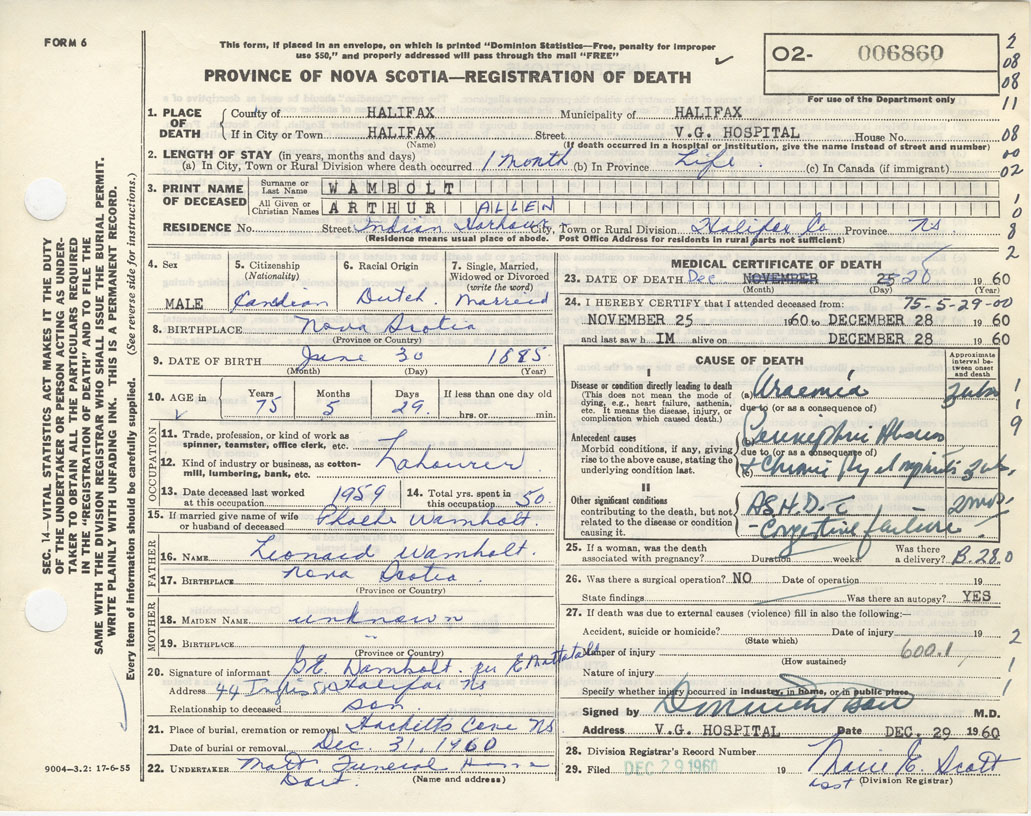 FORM 6
This form, if placed in an envelope, on which is printed "Dominion Statistics—Free, penalty for improper
use $50," and properly addressed will pass through the mail "FREE"
PROVINCE OF NOVA SCOTIA—REGISTRATION OF DEATH
02- 006860
For use of the Department only
2
08
08
11
08
00
02
1
0
8
2
1. PLACE OF DEATH County of HALIFAX Municipality of HALIFAX
If in City or Town HALIFAX Street V.G. HOSPITAL House No.
(Name) (If death occurred in a hospital or institution, give the name instead of street and number)
2. LENGTH OF STAY (in years, months and days)
(a) In City, Town or Rural Division where death occurred 1 month (b) In Province Life. (c) In Canada (if immigrant)
3. PRINT NAME OF DECEASED Surname or Last Name WAMBOLT
All Given or Christian Names ARTHUR ALLEN
RESIDENCE No. Street Indian Harbour City, Town or Rural Division Halifax Co Province NS.
(Residence means usual place of abode. Post Office Address for residents in rural parts not sufficient)
4. Sex MALE
5. Citizenship (Nationality) Canadian
6. Racial Origin Dutch.
7. Single, Married, Widowed or Divorced (write the word) Married
8. BIRTHPLACE Nova Scotia
(Province or Country)
9. DATE OF BIRTH June 30 1885
(Month) (Day) (Year)
10. AGE in Years 75 Months 5 Days 29. If less than one day
hrs. or min.
OCCUPATION
11. Trade, profession, or kind of work as spinner, teamster, office clerk, etc.
12. Kind of industry or business, as cotton-mill, lumbering, bank, etc. Labourer
13. Date deceased last worked at this occupation 1959 14. Total yrs. spent in this occupation 50.
15. If married give name of wife or husband of deceased Phoebe Wambolt.
FATHER
16. NAME Leonard Wambolt.
17. BIRTHPLACE Nova Scotia
(Province or Country)
MOTHER
18. MAIDEN NAME unknown
19. BIRTHPLACE "
(Province or Country)
20. Signature of informant G.E. Wambolt. per E Mattatall
Address 44 Inglis St Halifax NS
Relationship to deceased son.
21. Place of burial, cremation or removal Hacketts Cove NS
Date of burial or removal Dec. 31, 1960
22. UNDERTAKER Matt. Funeral Home
Dart. (Name and address)
MEDICAL CERTIFICATE OF DEATH
23. DATE OF DEATH Dec NOVEMBER 25-28 1960
(Month) (Day) (Year)
24. I HEREBY CERTIFY that I attended deceased from: 75-5-29-00
NOVEMBER 25 1960 to DECEMBER 28 1960
and last saw h IM alive on DECEMBER 28 1960
CAUSE OF DEATH
Approximate interval between onset and death
I
Disease or condition directly leading to death
(This does not mean the mode of dying, e.g., heart failure, asthenia, etc. It means the disease, injury, or complication which caused death.)
(a) Uraemia
due to (or as a consequence of)
Antecedent causes
Morbid conditions, if any, giving rise to the above cause, stating the underlying condition last.
(b)
due to (or as a consequence of)
(c)
II
Other significant conditions
contributing to the death, but not related to the disease or condition causing it.
A.S.H.D. c
- Congestive failure
1
1
9
25. If a woman, was the death associated with pregnancy? Duration weeks. Was there a delivery? B.28.0
26. Was there a surgical operation? NO Date of operation 19
State findings Was there an autopsy? YES
27. If death was due to external causes (violence) fill in also the following:—
Accident, suicide or homicide? Date of injury 19
(State which)
Manner of injury 600.1
(How sustained)
Nature of injury
Specify whether injury occurred in industry, in home, or in public place
2
1
1
Signed by M.D.
Address V.G. HOSPITAL Date DEC. 29 1960
28. Division Registrar's Record Number
29. Filed DEC 29 1960 19 Marie E. Scott
(Division Registrar)
SEC. 14—VITAL STATISTICS ACT MAKES IT THE DUTY
OF THE UNDERTAKER OR PERSON ACTING AS UNDER-
TAKER TO OBTAIN ALL THE PARTICULARS REQUIRED
IN THE "REGISTRATION OF DEATH" AND TO FILE THE
SAME WITH THE DIVISION REGISTRAR WHO SHALL ISSUE THE BURIAL PERMIT.
WRITE PLAINLY WITH UNFADING INK. THIS IS A PERMANENT RECORD.
Every item of information should be carefully supplied. (See reverse side for instructions.)
9004—3.2: 17-6-55